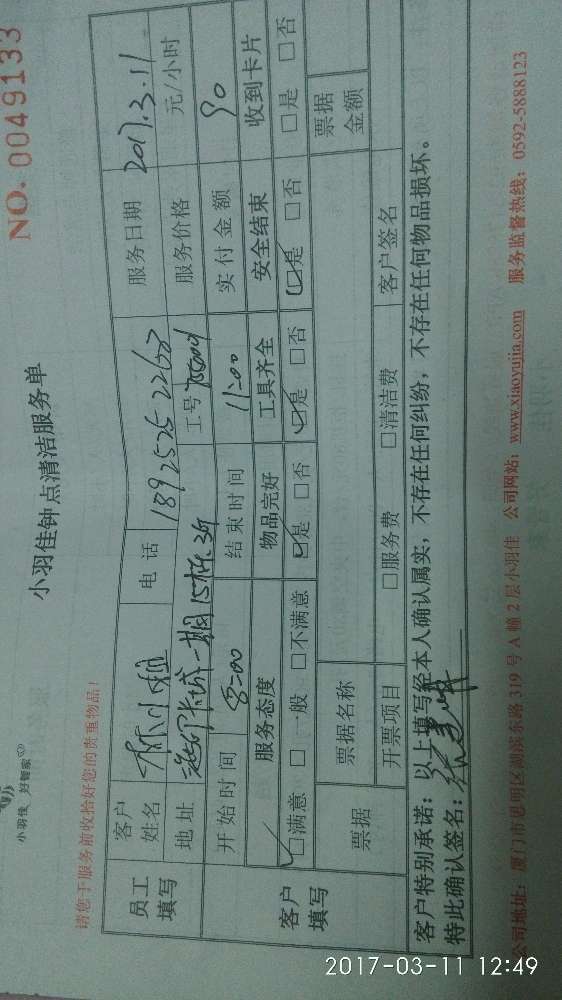 小羽佳 好管家
小羽佳钟点清洁服务单
NO. 0049133
请您于服务前收拾好您的贵重物品！
员工填写
客户姓名 林小姐 电话 18925252263 服务日期 2017.3.11
地址 工号 服务价格 元/小时
客户填写
开始时间 8:00 结束时间 11:00 实付金额 90
服务态度 物品完好 工具齐全 安全结束 收到卡片
□满意 □一般 □不满意 □是 □否 □是 □否 □是 □否 □是 □否
票据 票据名称 票据金额
开票项目 □服务费 □清洁费 客户签名
客户特别承诺：以上填写经本人确认属实，不存在任何纠纷，不存在任何物品损坏。
特此确认签名：
公司地址：厦门市思明区湖滨东路319号A幢2层小羽佳 公司网站：www.xiaoyujia.com 服务监督热线：0592-5888123
2017-03-11 12:49